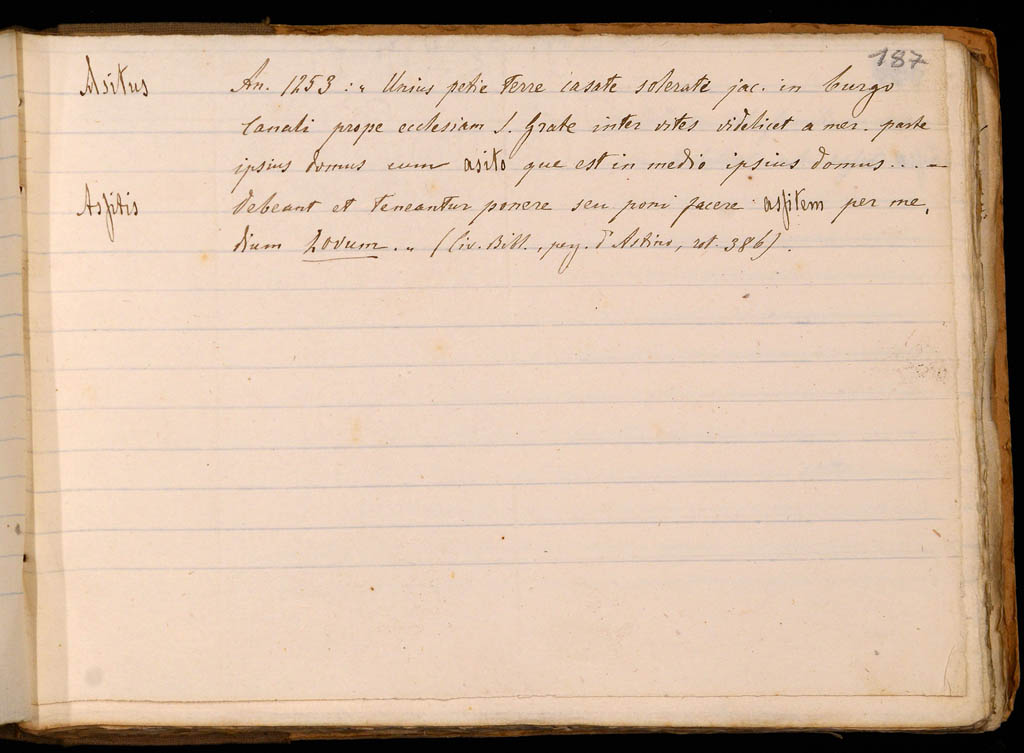 187
Asitus An. 1253 : „ Unius petie terre casate solerate jac. in burgo
Canali prope ecclesiam S. Grate inter vites videlicet a mer. parte
ipsius domus cum asito que est in medio ipsius domus.... —
Aspitis debeant et teneantur ponere seu poni facere aspitem per me,
dium Lovum. „ (Civ. Bibl., peg. d'Astino, rot. 386).